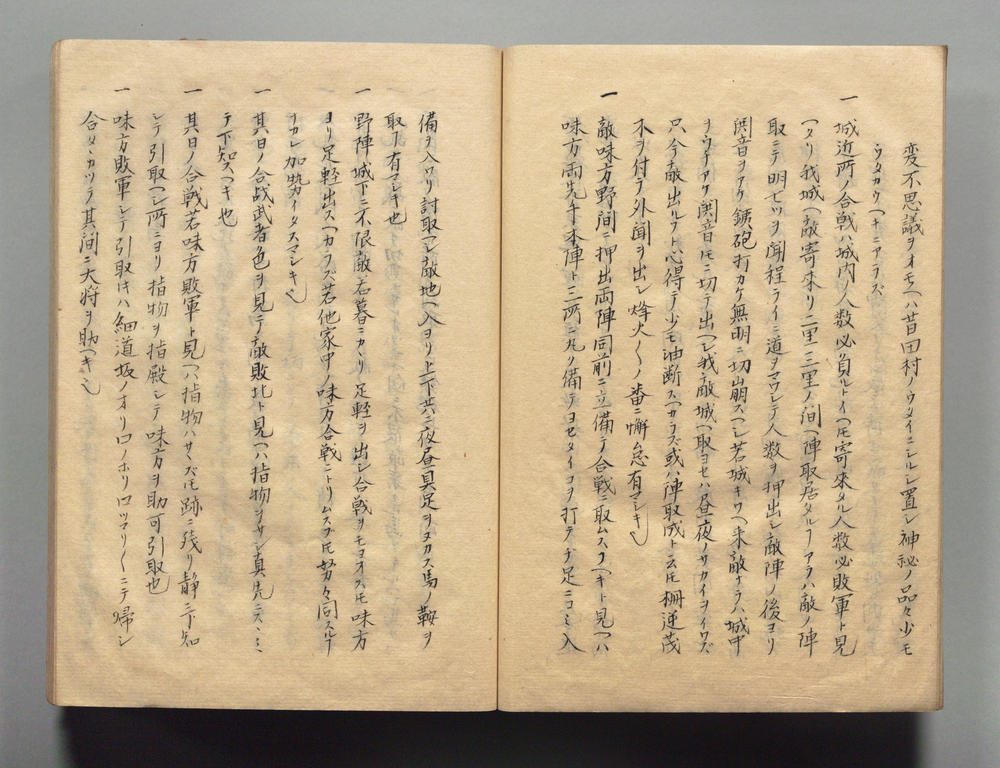 変不思議ヲオモヘハ昔田村ノウタイニシルレ置シ神秘ノ品々少モ
ウタカヘキニアラズ
一 城近所ノ合戦ハ城内ノ人数必負ルトイヘ𪜈寄来タル人数必敗軍ト見
ヘタリ我城ヘ敵寄来リ二里三里ノ間ヘ陣取居タルヿアラハ敵ノ陣
取ニテ明七ツヲ聞程ライニ道ヲマワシテ人数ヲ押出シ敵陣ノ後ヨリ
鬨音ヲアケ鉄砲打カケ無明ニ切崩スヘシ若城キワヘ来敵ナラハ城中
ヲウチアケ鬨音𪜈ニ切テ出ヘシ我敵城ヘ取ヨセハ昼夜ノサカイヲイワズ
只今敵出ルヿト心得テ少モ油断スヘカラズ或ハ陣取成ト云𪜈柵逆茂
木ヲ付テ外聞ヲ出シ烽火〳〵ノ番ニ懈怠有マシキ也
一 敵味方野間ニ押出両陣同前ニ立備テ合戦ニ取ムスフヘキト見ヘハ
味方両先手本陣ト三所ニ丸ク備テヨセタイコヲ打テチ足ニコミ入
備ヲ入ワリ討取ヘシ敵地ヘ入ヨリ上下共ニ夜昼具足ヲヌカス馬ノ鞍ヲ
取𪜈有マシキ也
一 野陣城下ニ不限敵若暮ニカヽリ足軽ヲ出シ合戦ヲモヨオス𪜈味方
ヨリ足軽出スヘカラズ若他家中ノ味方合戦ニトリムスブ𪜈努々同スルヿ
ナカレ加勢イタスマシキ也
一 其日ノ合战武者色ヲ見テ敵敗北ト見ヘハ指物ヲサシ真先ニスヽミ
テ下知スヘキ也
一 其日ノ合戦若味方敗軍ト見ヘハ指物ハサヽズ𪜈跡ニ残リ静ニ下知
シテ引取ヘシ所ニヨリ指物ヲ指殿シテ味方ヲ助可引取也
一 味方敗軍シテ引取キハ細道坂ノオリ口ノホリ口ツマリ〳〵ニテ帰シ
合タヽカツテ其間ニ大将ヲ助ヘキ也